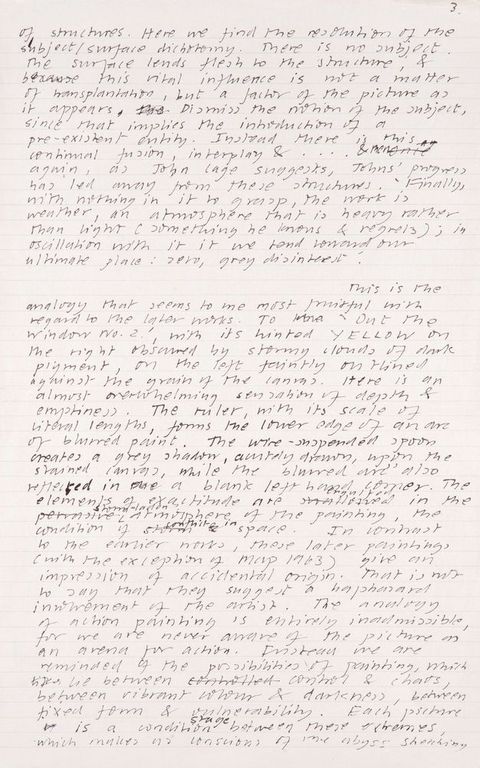 3.
of structures. Here we find the resolution of the
subject/surface dichotomy. There is no subject.
The surface lends flesh to the structure, &
because this vital influence is not a matter
of transplantation, but a factor of the picture as
it appears, the Dismiss the notion of the subject,
since that implies the introduction of a
pre-existent entity. Instead there is this
continual fusion, interplay & . . . .
again, as John Cage suggests, Johns' progress
has led away from these structures. 'Finally,
with nothing in it to grasp, the work is
weather, an atmosphere that is heavy rather
than light (something he knows & regrets); in
oscillation with it we tend toward our
ultimate place: zero, grey disinterest'.
This is the
analogy that seems to me most fruitful with
regard to the later works. To 'Out the
Window No. 2', with its hinted YELLOW on
the right obscured by stormy clouds of dark
pigment, on the left faintly outlined
against the grain of the canvas. Here is an
almost overwhelming sensation of depth &
emptiness. The ruler, with its scale of
literal lengths, forms the lower edge of an arc
of blurred paint. The wire-suspended spoon
creates a grey shadow, acutely drawn, upon the
stained canvas, while the blurred arc also
reflected in a blank left hand corner. The
elements of exactitude are in the
atmosphere of the painting, the
condition of space. In contrast
to the earlier works, these later paintings
(with the exception of Map 1963) give an
impression of accidental origin. That is not
to say that they suggest a haphazard
involvement of the artist. The analogy
of action painting is entirely inadmissible,
for we are never aware of the picture as
an arena for action. Instead we are
reminded of the possibilities of painting, which
lie between controlled control & chaos,
between vibrant colour & darkness, between
fixed form & vulnerability. Each picture
stage
is a condition between these extremes,
which makes us conscious of the abyss